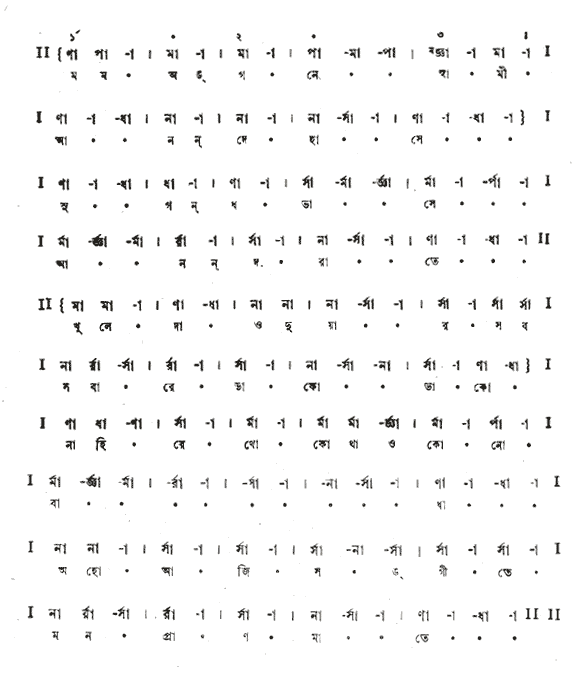 ১´ • ২ • ৩ ৪
II {ণা পা -া । মা -া । মা -া । পা -মা -পা । ᵐজ্ঞা -া মা -া I
ম ম • অ ঙ্ গ • নে • • স্বা • মী •
I ণা -া -ধা । না -া । না -া । না -র্সা -া । ণা -া -ধা -া} I
আ • • ন ন্ দে • হা • • সে • • •
I ণা -া -ধা । ধা -া । ণা -া । র্সা -র্মা -র্জ্ঞা । র্মা -া -র্পা -া I
সু • • গ ন্ ধ • ভা • • সে • • •
I র্মা -র্জ্ঞা -র্মা । র্রা -া । র্সা -া । না -র্সা -া । ণা -া -ধা -া II
আ • • ন ন্ দ • রা • • তে • • •
II { মা মা -া । ণা -ধা । না না । না -র্সা -া । র্সা -া র্সা র্সা I
খু লে • দা • ও দু য়া • • র • স ব
I না র্রা -র্সা । র্রা -া । র্সা -া । না -র্সা -না । র্সা -া ণা -ধা} I
স বা • রে • ডা • কো • • ডা • কো •
I ণা ধা -ণা । র্সা -া । র্মা -া । র্মা র্মা -র্জ্ঞা । র্মা -া র্পা -া I
না হি • রে • থো • কো থা ও কো • নো •
I র্মা -র্জ্ঞা র্মা । -র্রা -া । -র্সা -া । -না -র্সা -া । ণা -া -ধা -া I
বা • • • • • • • • • ধা • • •
I না না -া । র্সা -া । র্সা -া । র্সা -না -র্সা । র্সা -া র্সা -া I
অ হো • আ • জি • স • ঙ্ গী • তে •
I না র্রা -র্সা । র্রা -া । র্সা -া । না -র্সা -া । ণা -া -ধা -া II II
ম ন • প্রা • ণ • মা • • তে • • •